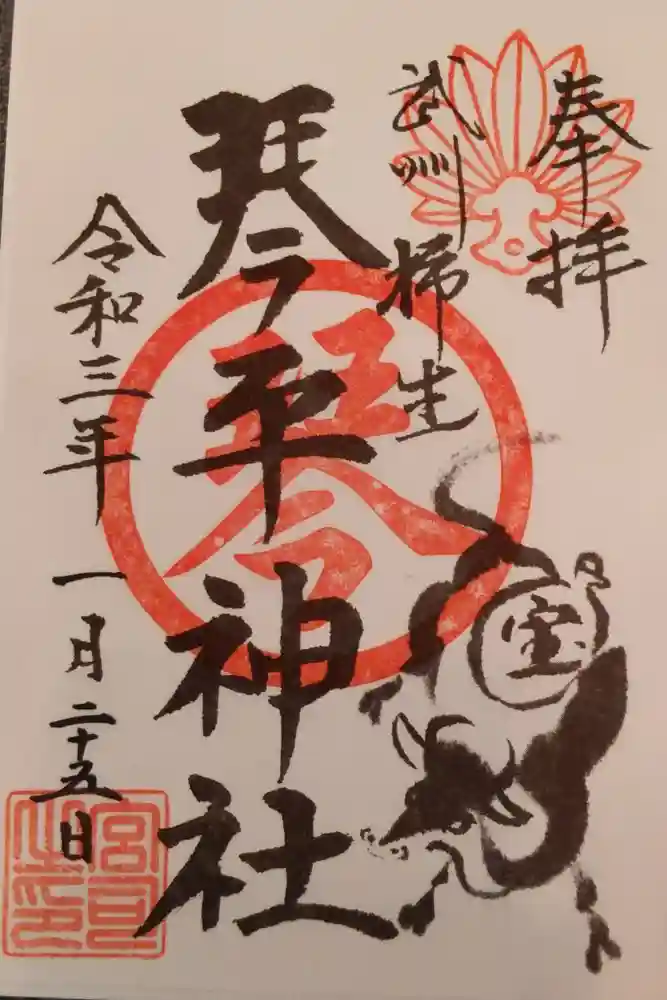 奉拝
武州柿生
琴平神社
令和三年一月二十五日
宝
宮司之印